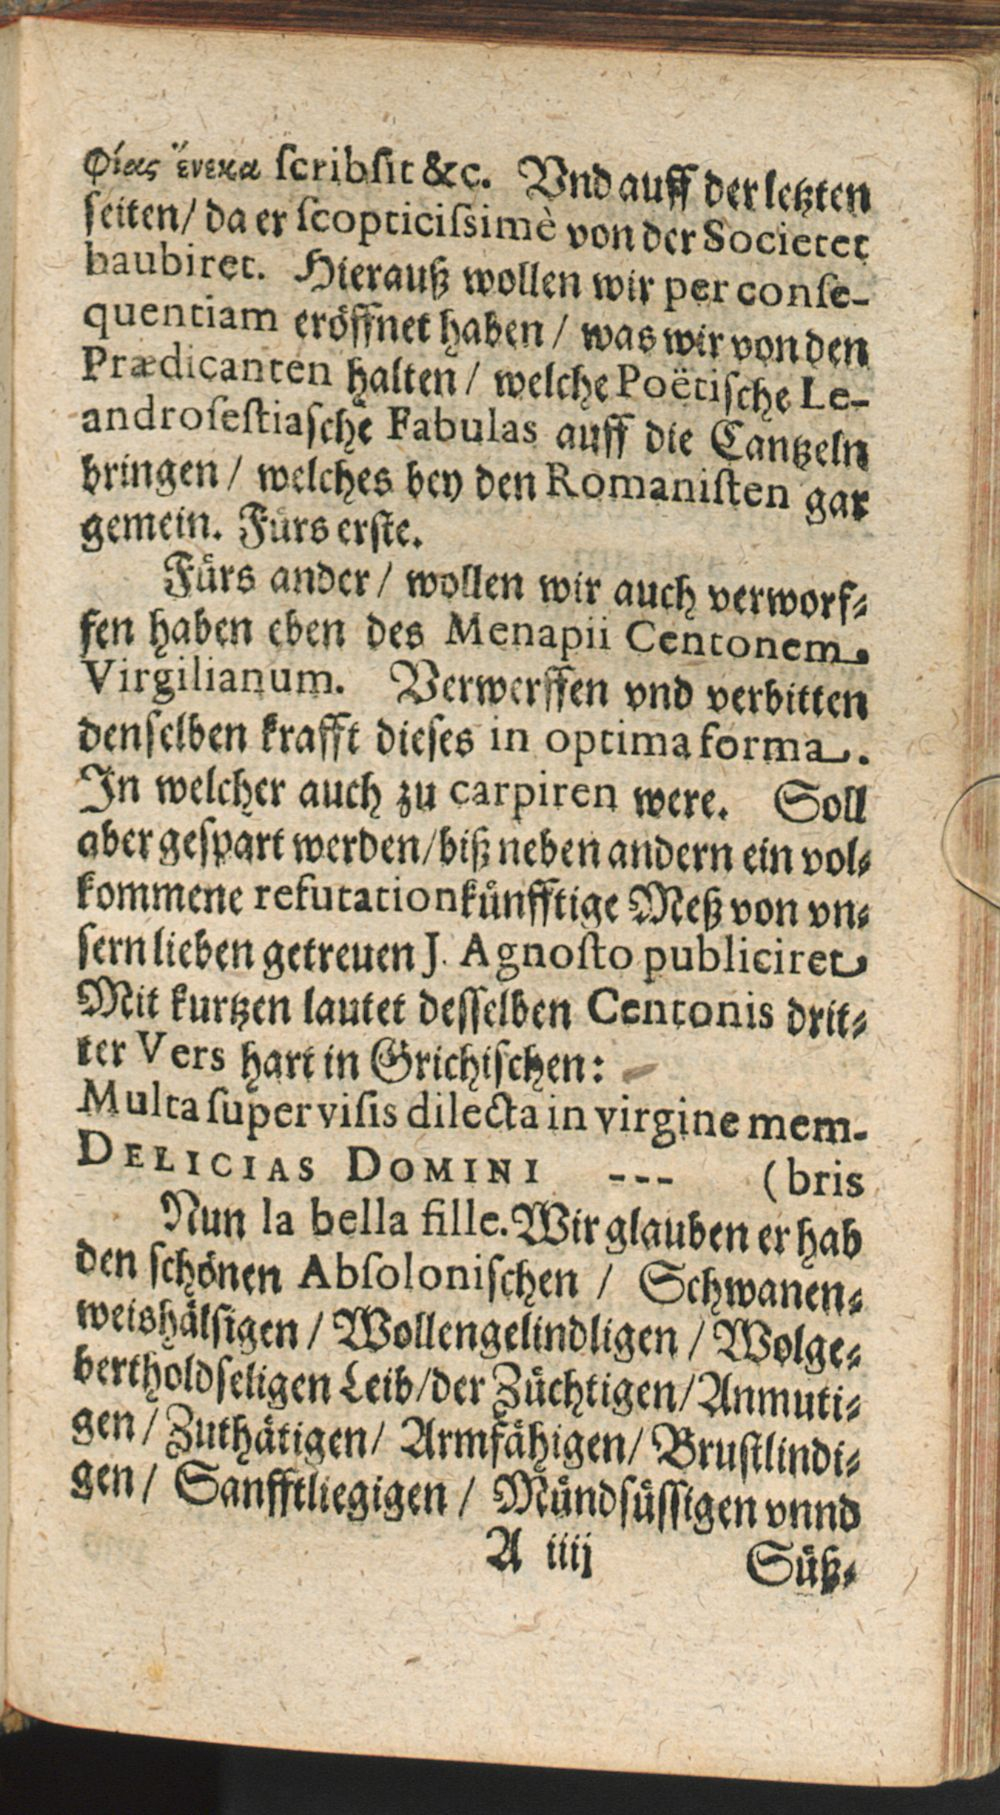 φίας ἕνεκα ſcribſit &c. Vnd auff der letzten
ſeiten/ da er ſcopticiſsimè von der Societet
haubiret. Hierauß wollen wir per conſe-
quentiam eröffnet haben / was wir von den
Prædicanten halten / welche Poëtiſche Le-
androſeſtiaſche Fabulas auff die Cantzeln
bringen / welches bey den Romaniſten gar
gemein. Fürs erſte.
Fürs ander / wollen wir auch verworf-
fen haben eben des Menapii Centonem
Virgilianum. Verwerffen vnd verbitten
denſelben krafft dieſes in optima forma.
In welcher auch zu carpiren were. Soll
aber geſpart werden/biß neben andern ein vol-
kommene refutation künfftige Meß von vn-
ſern lieben getreuen J. Agnoſto publiciret
Mit kurtzen lautet deſſelben Centonis drit-
ter Vers hart in Grichiſchen:
Multa ſuper viſis dilecta in virgine mem-
DELICIAS DOMINI --- (bris
Nun la bella fille. Wir glauben er hab
den ſchönen Abſoloniſchen / Schwanen-
weishälſigen / Wollengelindligen / Wolge-
bertholdſeligen Leib/der Züchtigen/Anmuti-
gen / Zuthätigen/ Armfähigen/ Bruſtlindi-
gen / Sanfftliegigen / Mündſüſſigen vnnd
A iiij Süß-